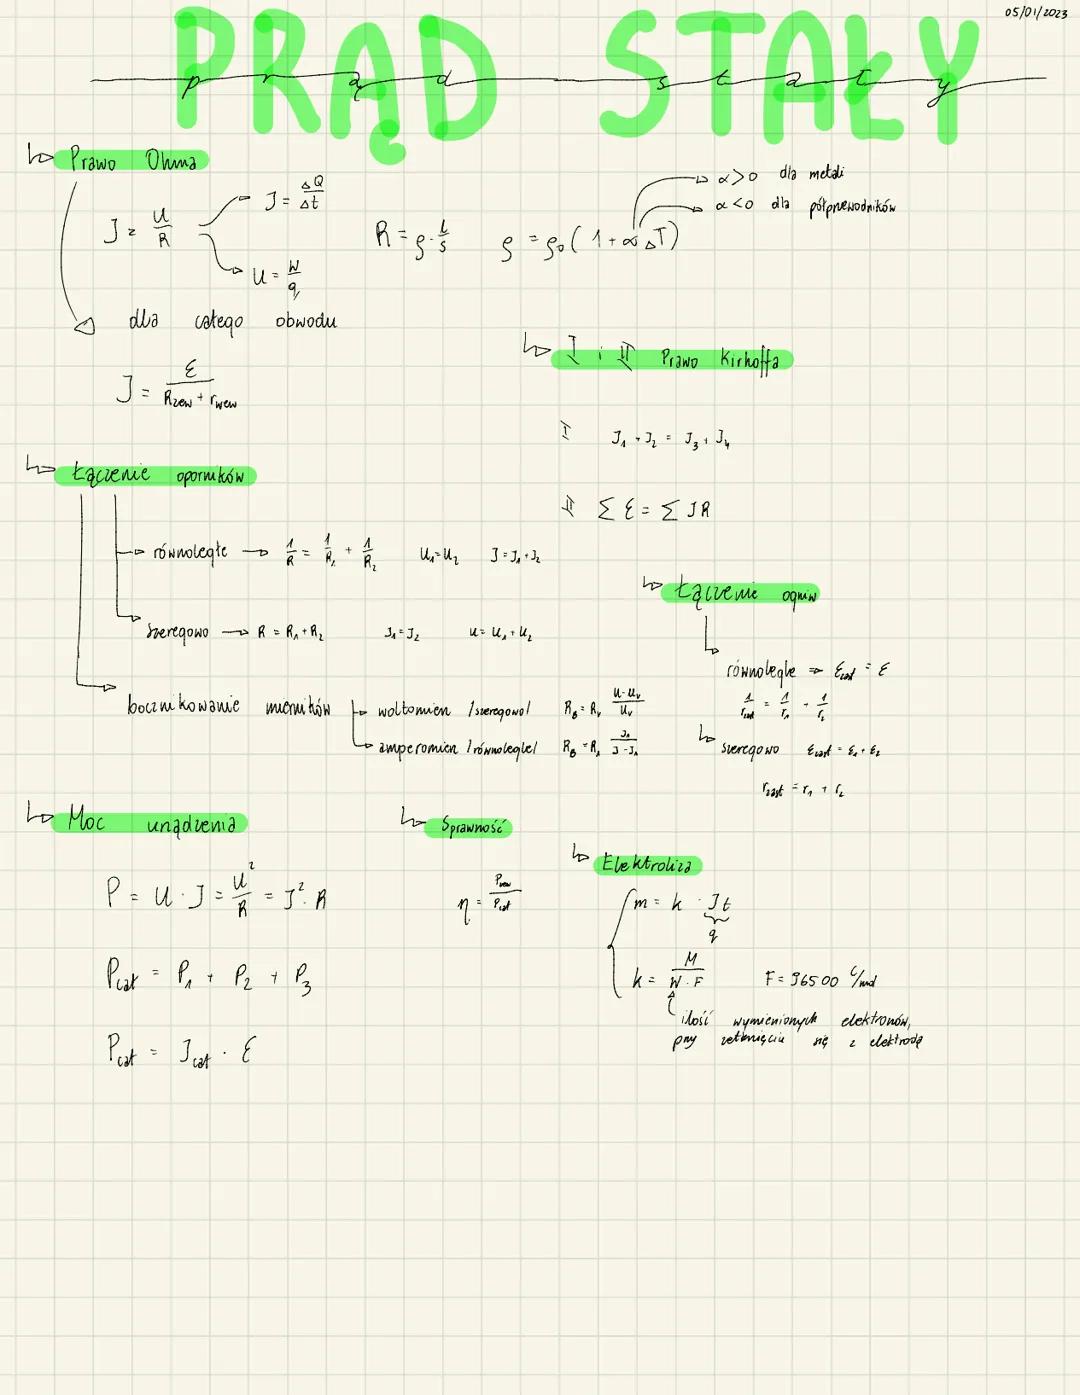 05/01/2023
PRĄD STAŁY
prąd stały
↳ Prawo Ohma
J = U/R
J = ΔQ/Δt
U = W/q
R = ρ · l/s
ρ = ρ₀ (1 + α ΔT)
α > 0 dla metali
α < 0 dla półprzewodników
dla całego obwodu
J = ε/(Rzew + rwew)
↳ I i II Prawo Kirhoffa
I J₁ + J₂ = J₃ + J₄
II Σ ε = Σ JR
↳ Łączenie oporników
równoległe → 1/R = 1/R₁ + 1/R₂ U₁ = U₂ J = J₁ + J₂
szeregowo → R = R₁ + R₂ J₁ = J₂ U = U₁ + U₂
bocznikowanie mierników
woltomierz /szeregowo/ R_B = R_V (U - U_V)/U_V
amperomierz /równolegle/ R_B = R_A J_A/(J - J_A)
↳ Łączenie ogniw
równolegle ⇒ εzast = ε
1/rzast = 1/r₁ + 1/r₂
↳ szeregowo εzast = ε₁ + ε₂
rzast = r₁ + r₂
↳ Moc urządzenia
P = U · J = U²/R = J² · R
Pcał = P₁ + P₂ + P₃
Pcał = Jcał · ε
↳ Sprawność
η = Pzew/Pcał
↳ Elektroliza
m = k · Jt
q
k = M/(W · F) F = 96500 C/mol
ilość wymienionych elektronów,
przy zetknięciu się z elektrodą